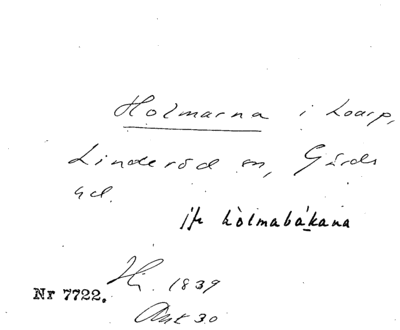 Holmarna i Loarp,
Linderöd sn, Gärds
hd.
jfr hòlmabákana
Hr. 1839
Nr 7722.
Ant 30